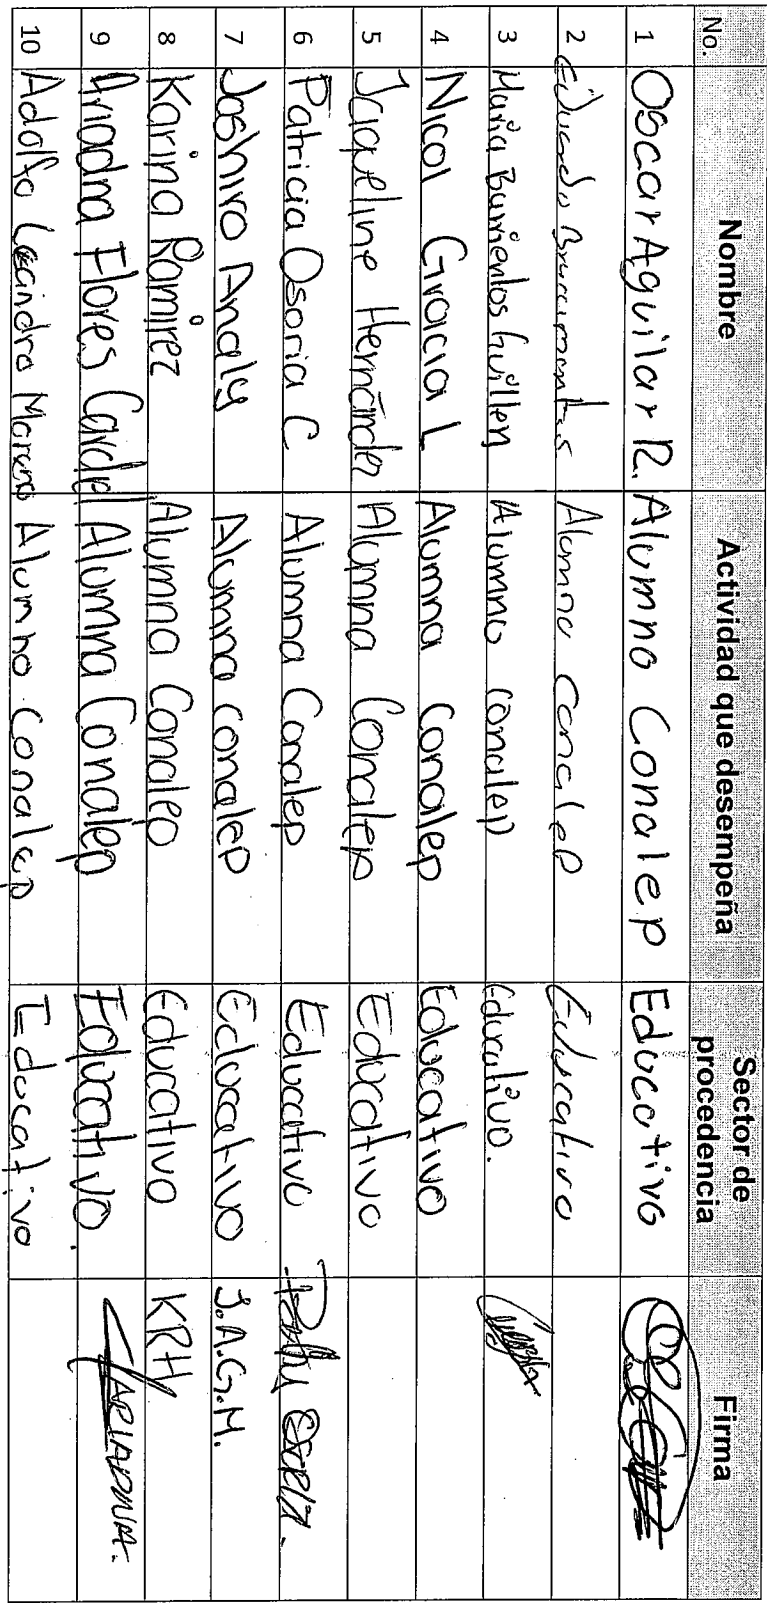 No. Nombre Actividad que desempeña Sector de procedencia Firma
1 Oscar Aguilar R. Alumno Conalep Educativo
2 Eduardo Alumno Conalep Educativo
3 Maria Barrientos Guillen Alumno conalep Educativo.
4 Nicol Gracia L Alumna Conalep Educativo
5 Jaqueline Hernández Alumna Conalep Educativo
6 Patricia Osoria C Alumna Conalep Educativo
7 Joshiro Analy Alumna conalep Educativo J.A.G.M.
8 Karina Ramirez Alumna Conalep Educativo KRH
9 Ariadna Flores Alumna Conalep Educativo. ARIADNA.
10 Adolfo Leandro Moreno Alumno Conalep Educativo